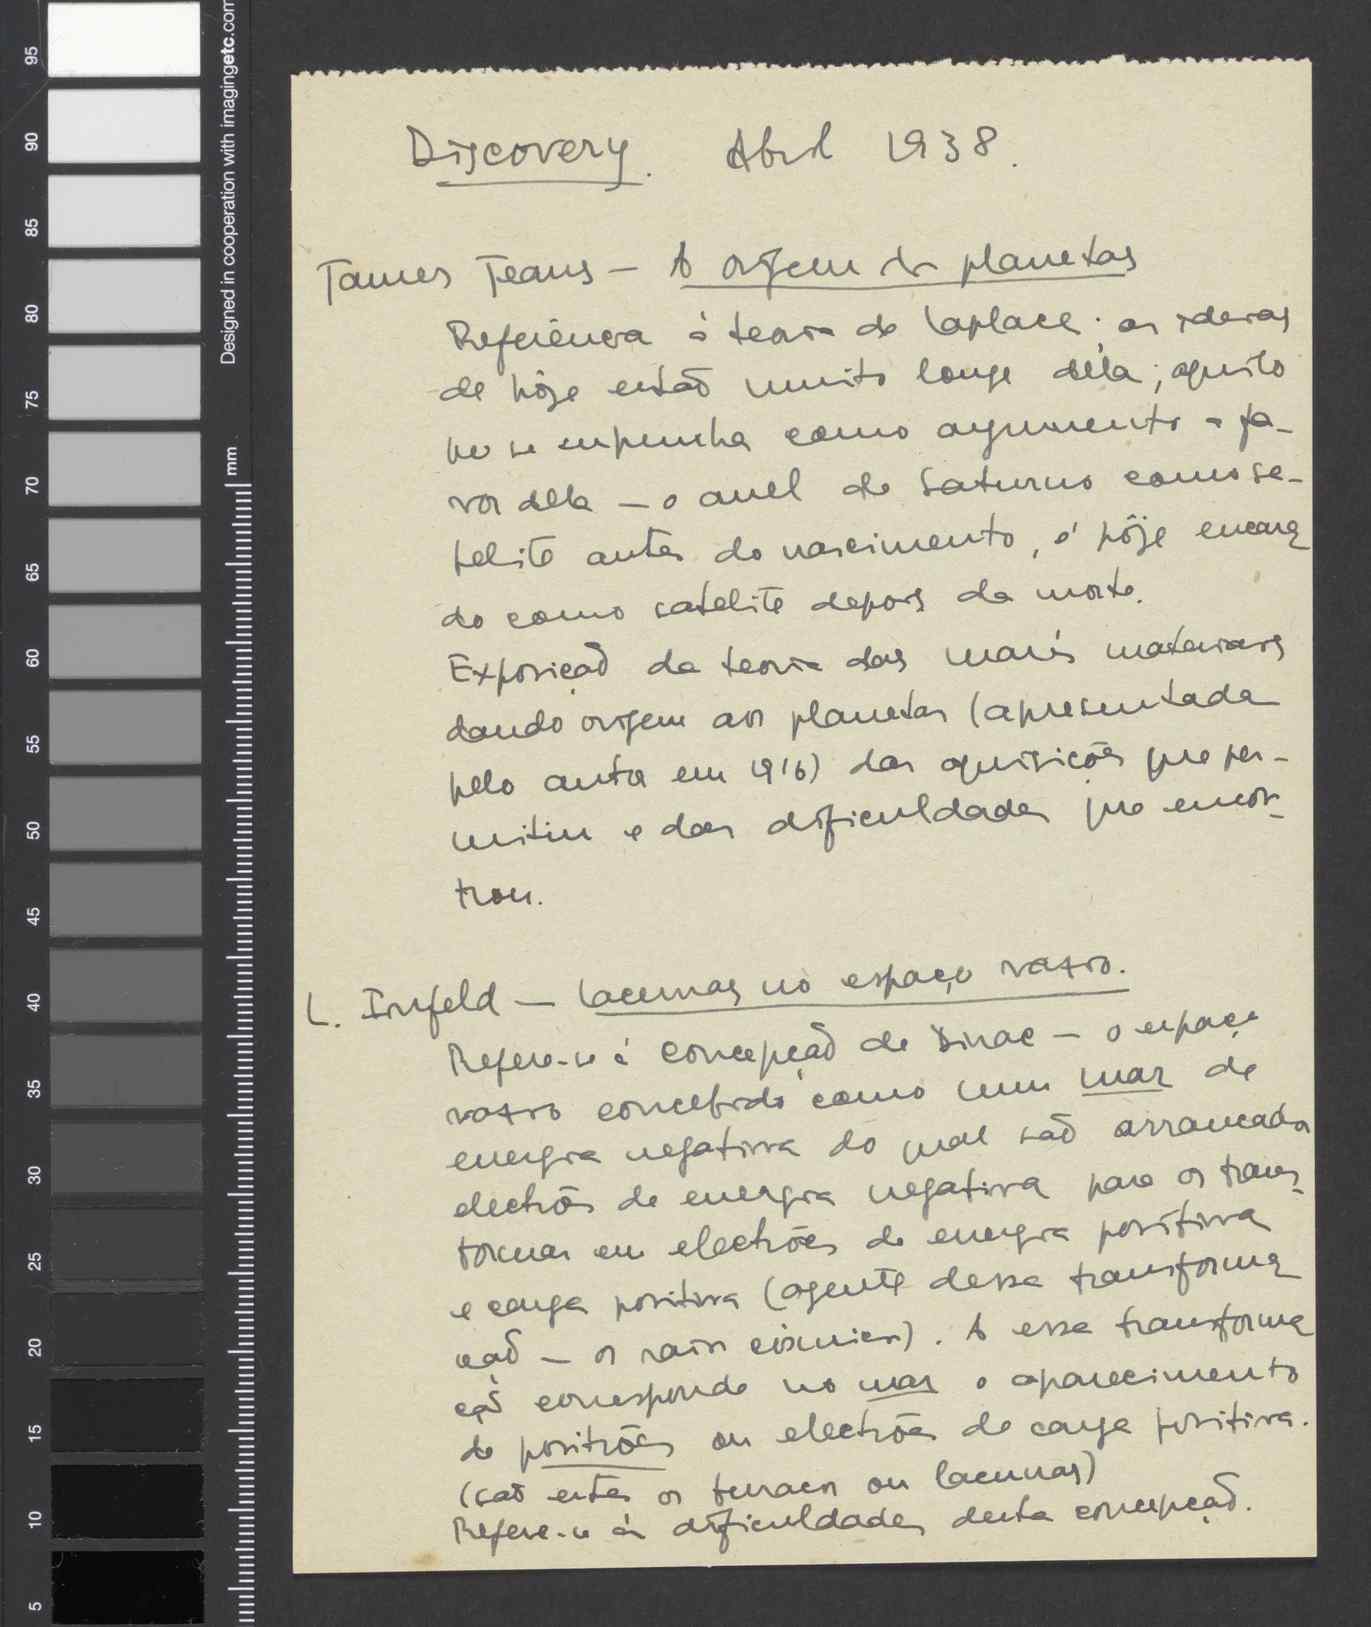 95
90
85
80
75
70
65
60
55
50
45
40
35
30
25
20
15
10
5
Designed in cooperation with imagingetc.com
mm
Discovery. Abril 1938.
James Jeans — A origem dos planetas
Referência à teoria de Laplace; as ideias
de hôje estão muito longe dela; aquilo
que se empunha como argumento a fa-
vor dela — o anel de Saturno como sa-
telite antes do nascimento, é hôje encara
do como satelite depois da morte.
Exposição da teoria das marés materiais
dando origem aos planetas (apresentada
pelo autor em 1916) das aquisições que per-
mitiu e das dificuldades que encon-
trou.
L. Infeld — Lacunas no espaço vazio.
Refere-se à concepção de Dirac — o espaço
vazio concebido como um mar de
energia negativa do qual são arrancados
electrões de energia negativa para os trans-
formar em electrões de energia positiva
e carga positiva (agente dessa transforma
ção — os raios cósmicos). A essa transforma
ção corresponde no mar o aparecimento
de positrões ou electrões de carga positiva.
(são estes os buracos ou lacunas)
Refere-se às dificuldades desta concepção.